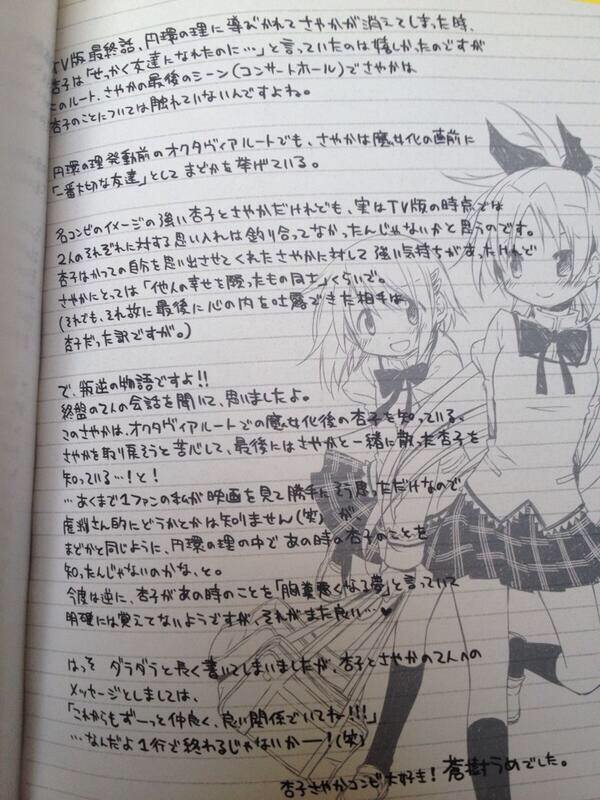 TV版最終話、円環の理に導びかれてさやかが消えてしまった時、
杏子は「せっかく友達になれたのに…」と言っていたのは嬉しかったのですが
このルート、さやかの最後のシーン(コンサートホール)でさやかは
杏子のことについては触れていないんですよね。
円環の理発動前のオクタヴィアルートでも、さやかは魔女化の直前に
「一番大切な友達」としてまどかを挙げている。
名コンビのイメージの強い杏子とさやかだけれども、実はTV版の時点では
2人のそれぞれに対する思い入れは釣り合ってなかったんじゃないかと思うのです。
杏子はかつての自分を思い出させてくれたさやかに対して強い気持ちがあったけれど
さやかにとっては「他人の幸せを願ったもの同士」くらいで。
(それでも、それ故に最後に心の内を吐露できた相手は
杏子だった訳ですが。)
で、叛逆の物語ですよ!!
終盤の2人の会話を聞いて、思いましたよ。
このさやかは、オクタヴィアルートでの魔女化後の杏子を知っている、
さやかを取り戻そうと苦心して、最後にはさやかと一緒に散った杏子を
知っている…!と!
…あくまで1ファンの私が映画を見て勝手にそう思っただけなので、
虚淵さん的にどうかとかは知りません(笑)が、
まどかと同じように、円環の理の中であの時の杏子のことを
知ったんじゃないのかな、と。
今度は逆に、杏子があの時のことを「胸糞悪くなる夢」と言っていて
明確には覚えてないようですが、それがまた良い…♥
はっそ ダラダラと長く書いてしまいましたが、杏子とさやかの2人への
メッセージとしましては、
「これからもずーっと仲良く、良い関係でいてねー!!!」
…なんだよ1行で終わるじゃないかー!(笑)
杏子さやかコンビ大好き! 蒼樹うめでした。